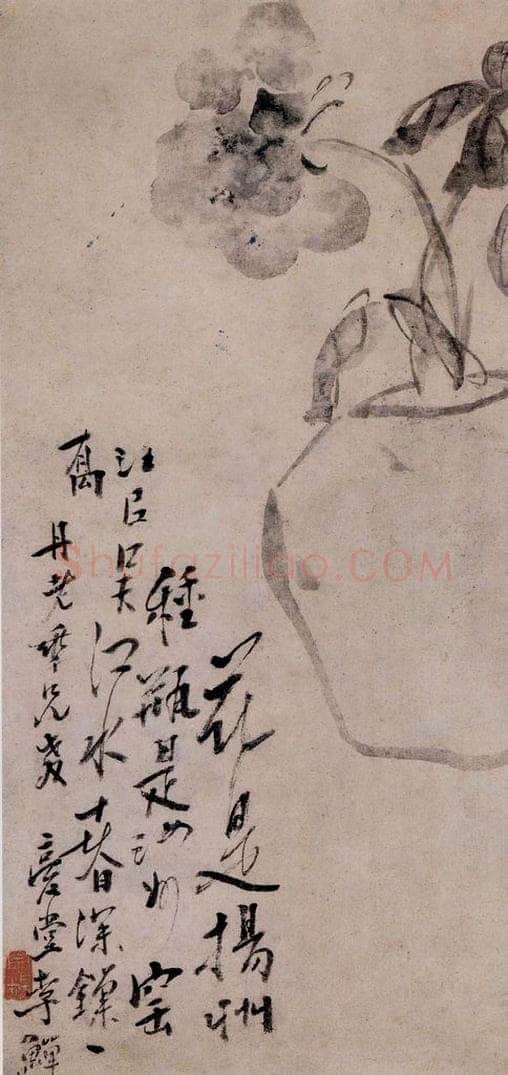 花是揚州
種瓶是汝州窑
注㠯吳江水春深鎖一
喬 丹老學兄教 復堂李鱓
Shufaziliao.COM